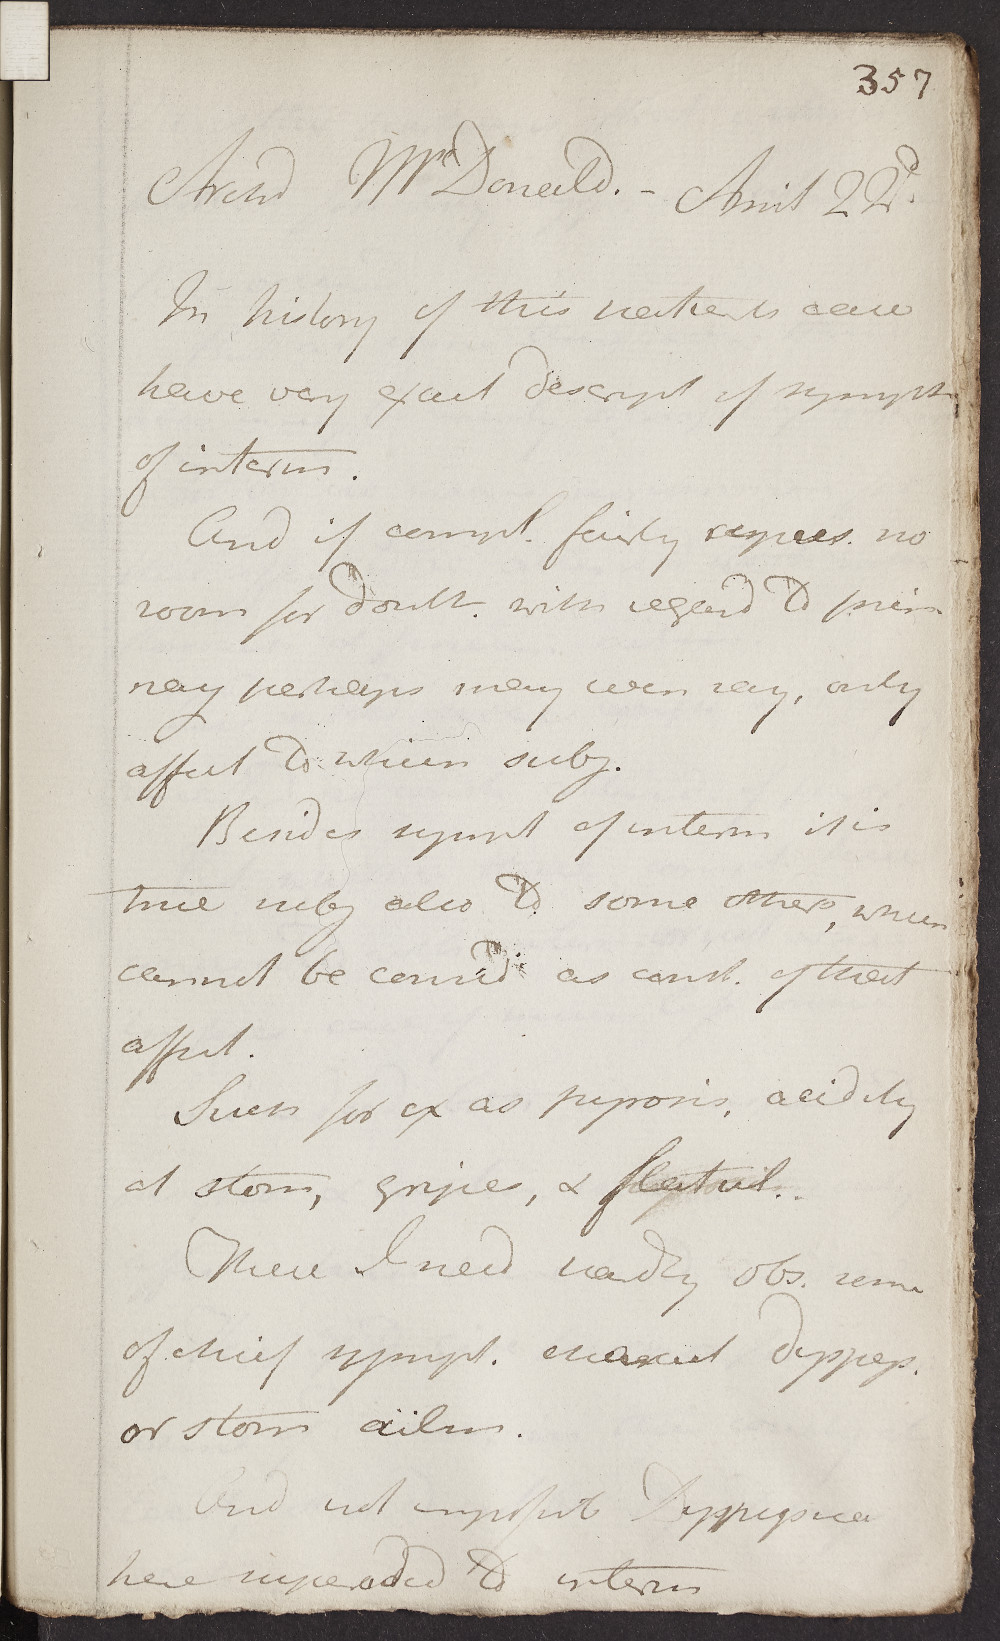 357
Archd McDonald. - April 22d.
In history of this patients case
have very exact descript of sympt
of interm.
And if compl. fairly repres. no
room for doubt. with regard to prin
nay perhaps may even say, only
affect to which subj.
Besides sympt of interm it is
true subj also to some others, which
cannot be consid as const. of that
affect.
Such for ex as pyrosis, acidity
at stom, gripes, & flatul.
These I need hardly obs. some
of chief sympt. charact dyspeps.
or stom ailm.
And not Dyspepsia
here superadded to interm